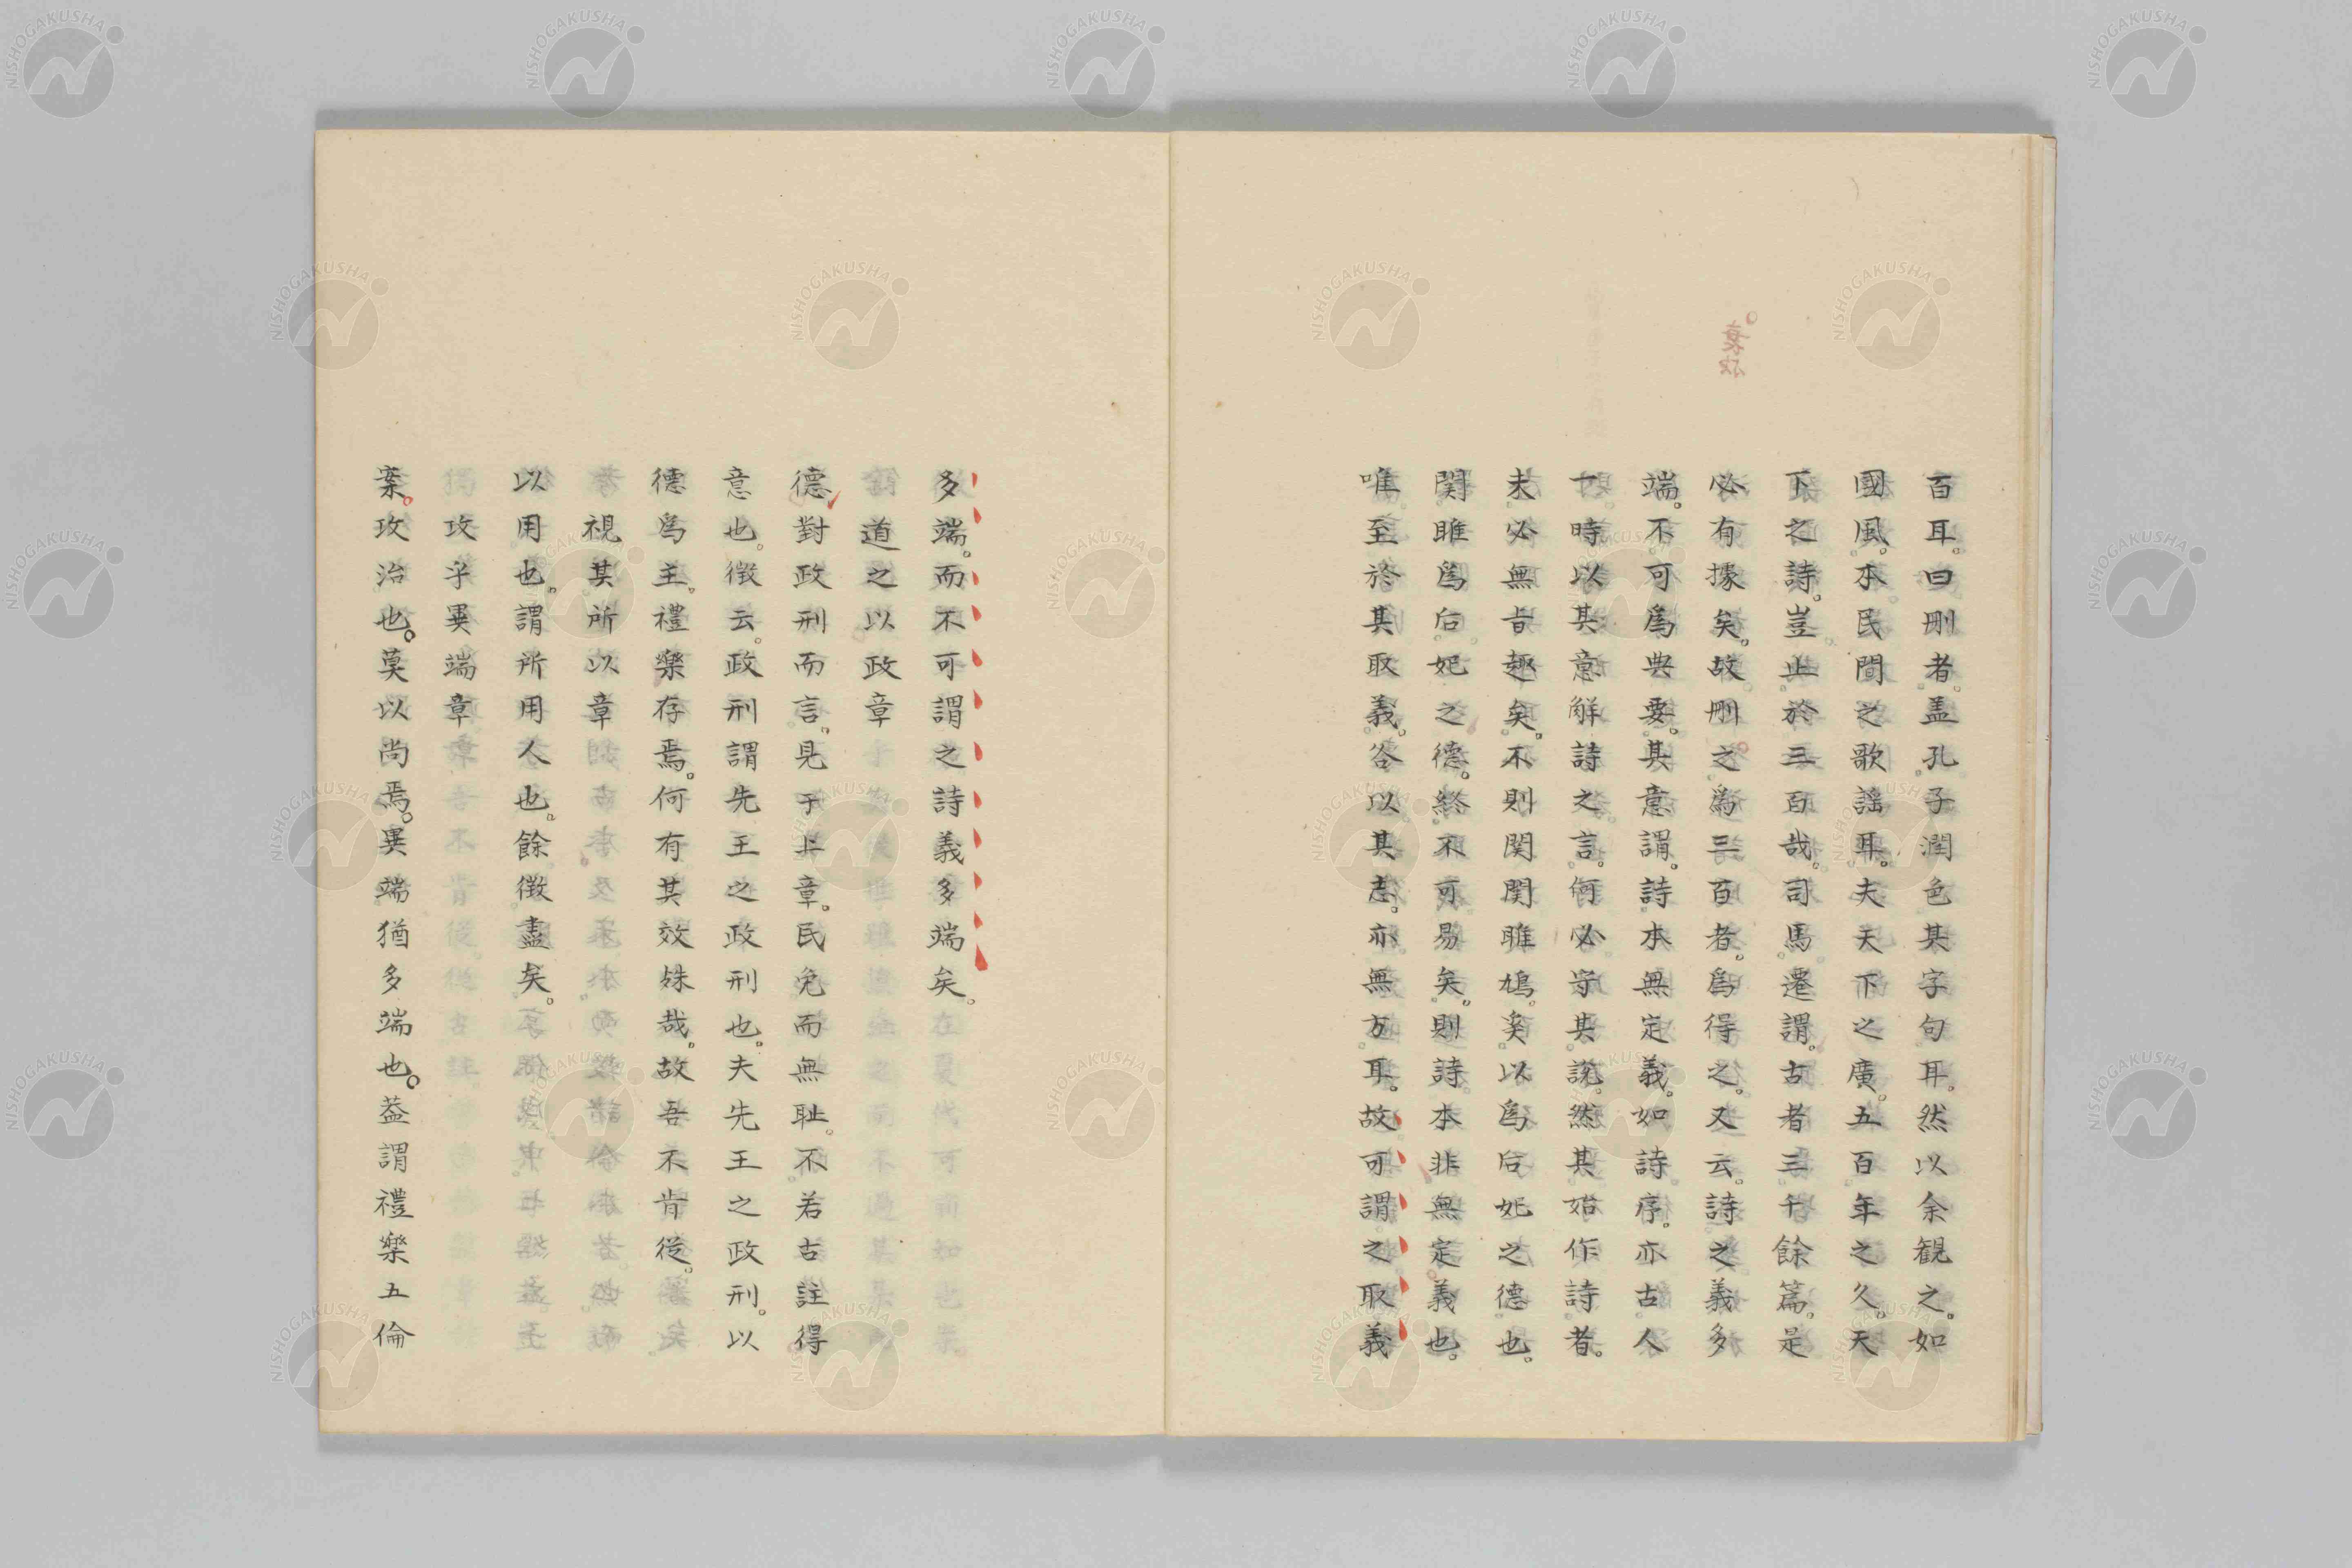 百耳。曰刪者。盖孔子潤色其字句耳。然以余観之。如
國風。本民間之歌謡耳。夫天下之廣。五百年之久。天
下之詩。豈止於三百哉。司馬遷謂。古者三千餘篇。是
必有據矣。故刪之為三百者。爲得之。又云。詩之義多
端。不可爲典要。其意謂。詩本無定義。如詩序。亦古人
一時以其意解詩之言。何必守其説。然其始作詩者。
未必無旨趣矣。不則関関雎鳩。奚以爲后妃之德也。
関雎爲后妃之德。終不可易矣。則詩本非無定義也。
唯至於其取義。各以其志。亦無方耳。故可謂之取義
多端。而不可謂之詩義多端矣。
道之以政章
德對政刑而言。見于上章。民免而無耻。不若古註得
意也。徴云。政刑謂先王之政刑也。夫先王之政刑。以
德爲主。禮樂存焉。何有其效殊哉。故吾不肯從。
視其所以章
以用也。謂所用人也。餘徴盡矣。
攻乎異端章
案。攻治也。莫以尚焉。異端猶多端也。盖謂禮樂五倫
NISHOGAKUSHA